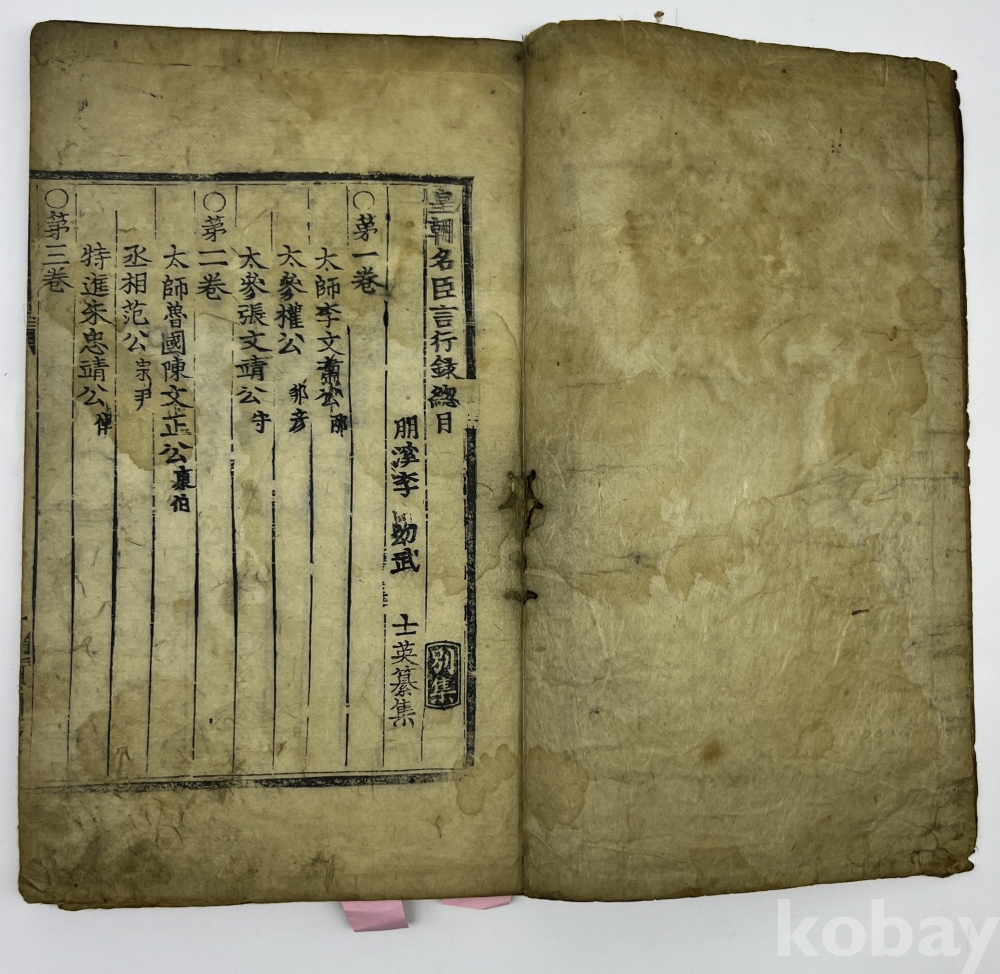 皇朝名臣言行録緫目 別集
朋溪李 幼武 士英纂集
○第一卷
太師李文肅公邴
太參權公邦彦
太參張文靖公守
○第二卷
太師魯國陳文正公康伯
丞相范公宗尹
特進朱忠靖公
○第三卷
kobay